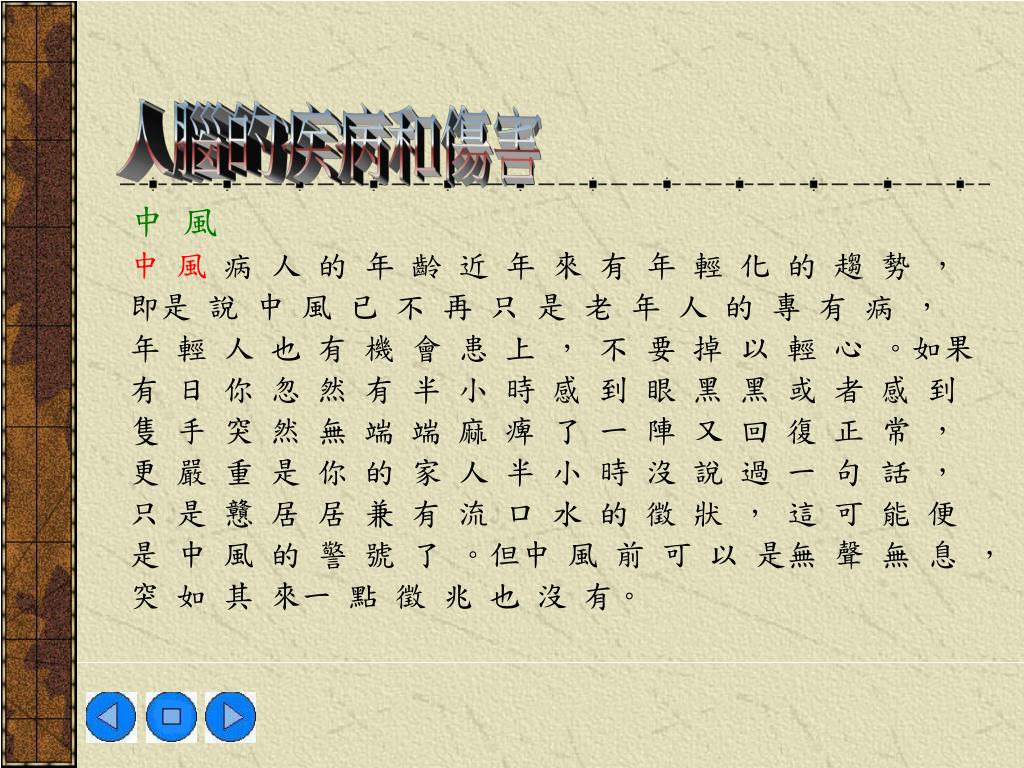 人腦的疾病和傷害
中 風
中 風 病 人 的 年 齡 近 年 來 有 年 輕 化 的 趨 勢 ，
即是 說 中 風 已 不 再 只 是 老 年 人 的 專 有 病 ，
年 輕 人 也 有 機 會 患 上 ， 不 要 掉 以 輕 心 。如果
有 日 你 忽 然 有 半 小 時 感 到 眼 黑 黑 或 者 感 到
隻 手 突 然 無 端 端 麻 痺 了 一 陣 又 回 復 正 常 ，
更 嚴 重 是 你 的 家 人 半 小 時 沒 說 過 一 句 話 ，
只 是 戇 居 居 兼 有 流 口 水 的 徵 狀 ， 這 可 能 便
是 中 風 的 警 號 了 。但中 風 前 可 以 是無 聲 無 息 ，
突 如 其 來一 點 徵 兆 也 沒 有。